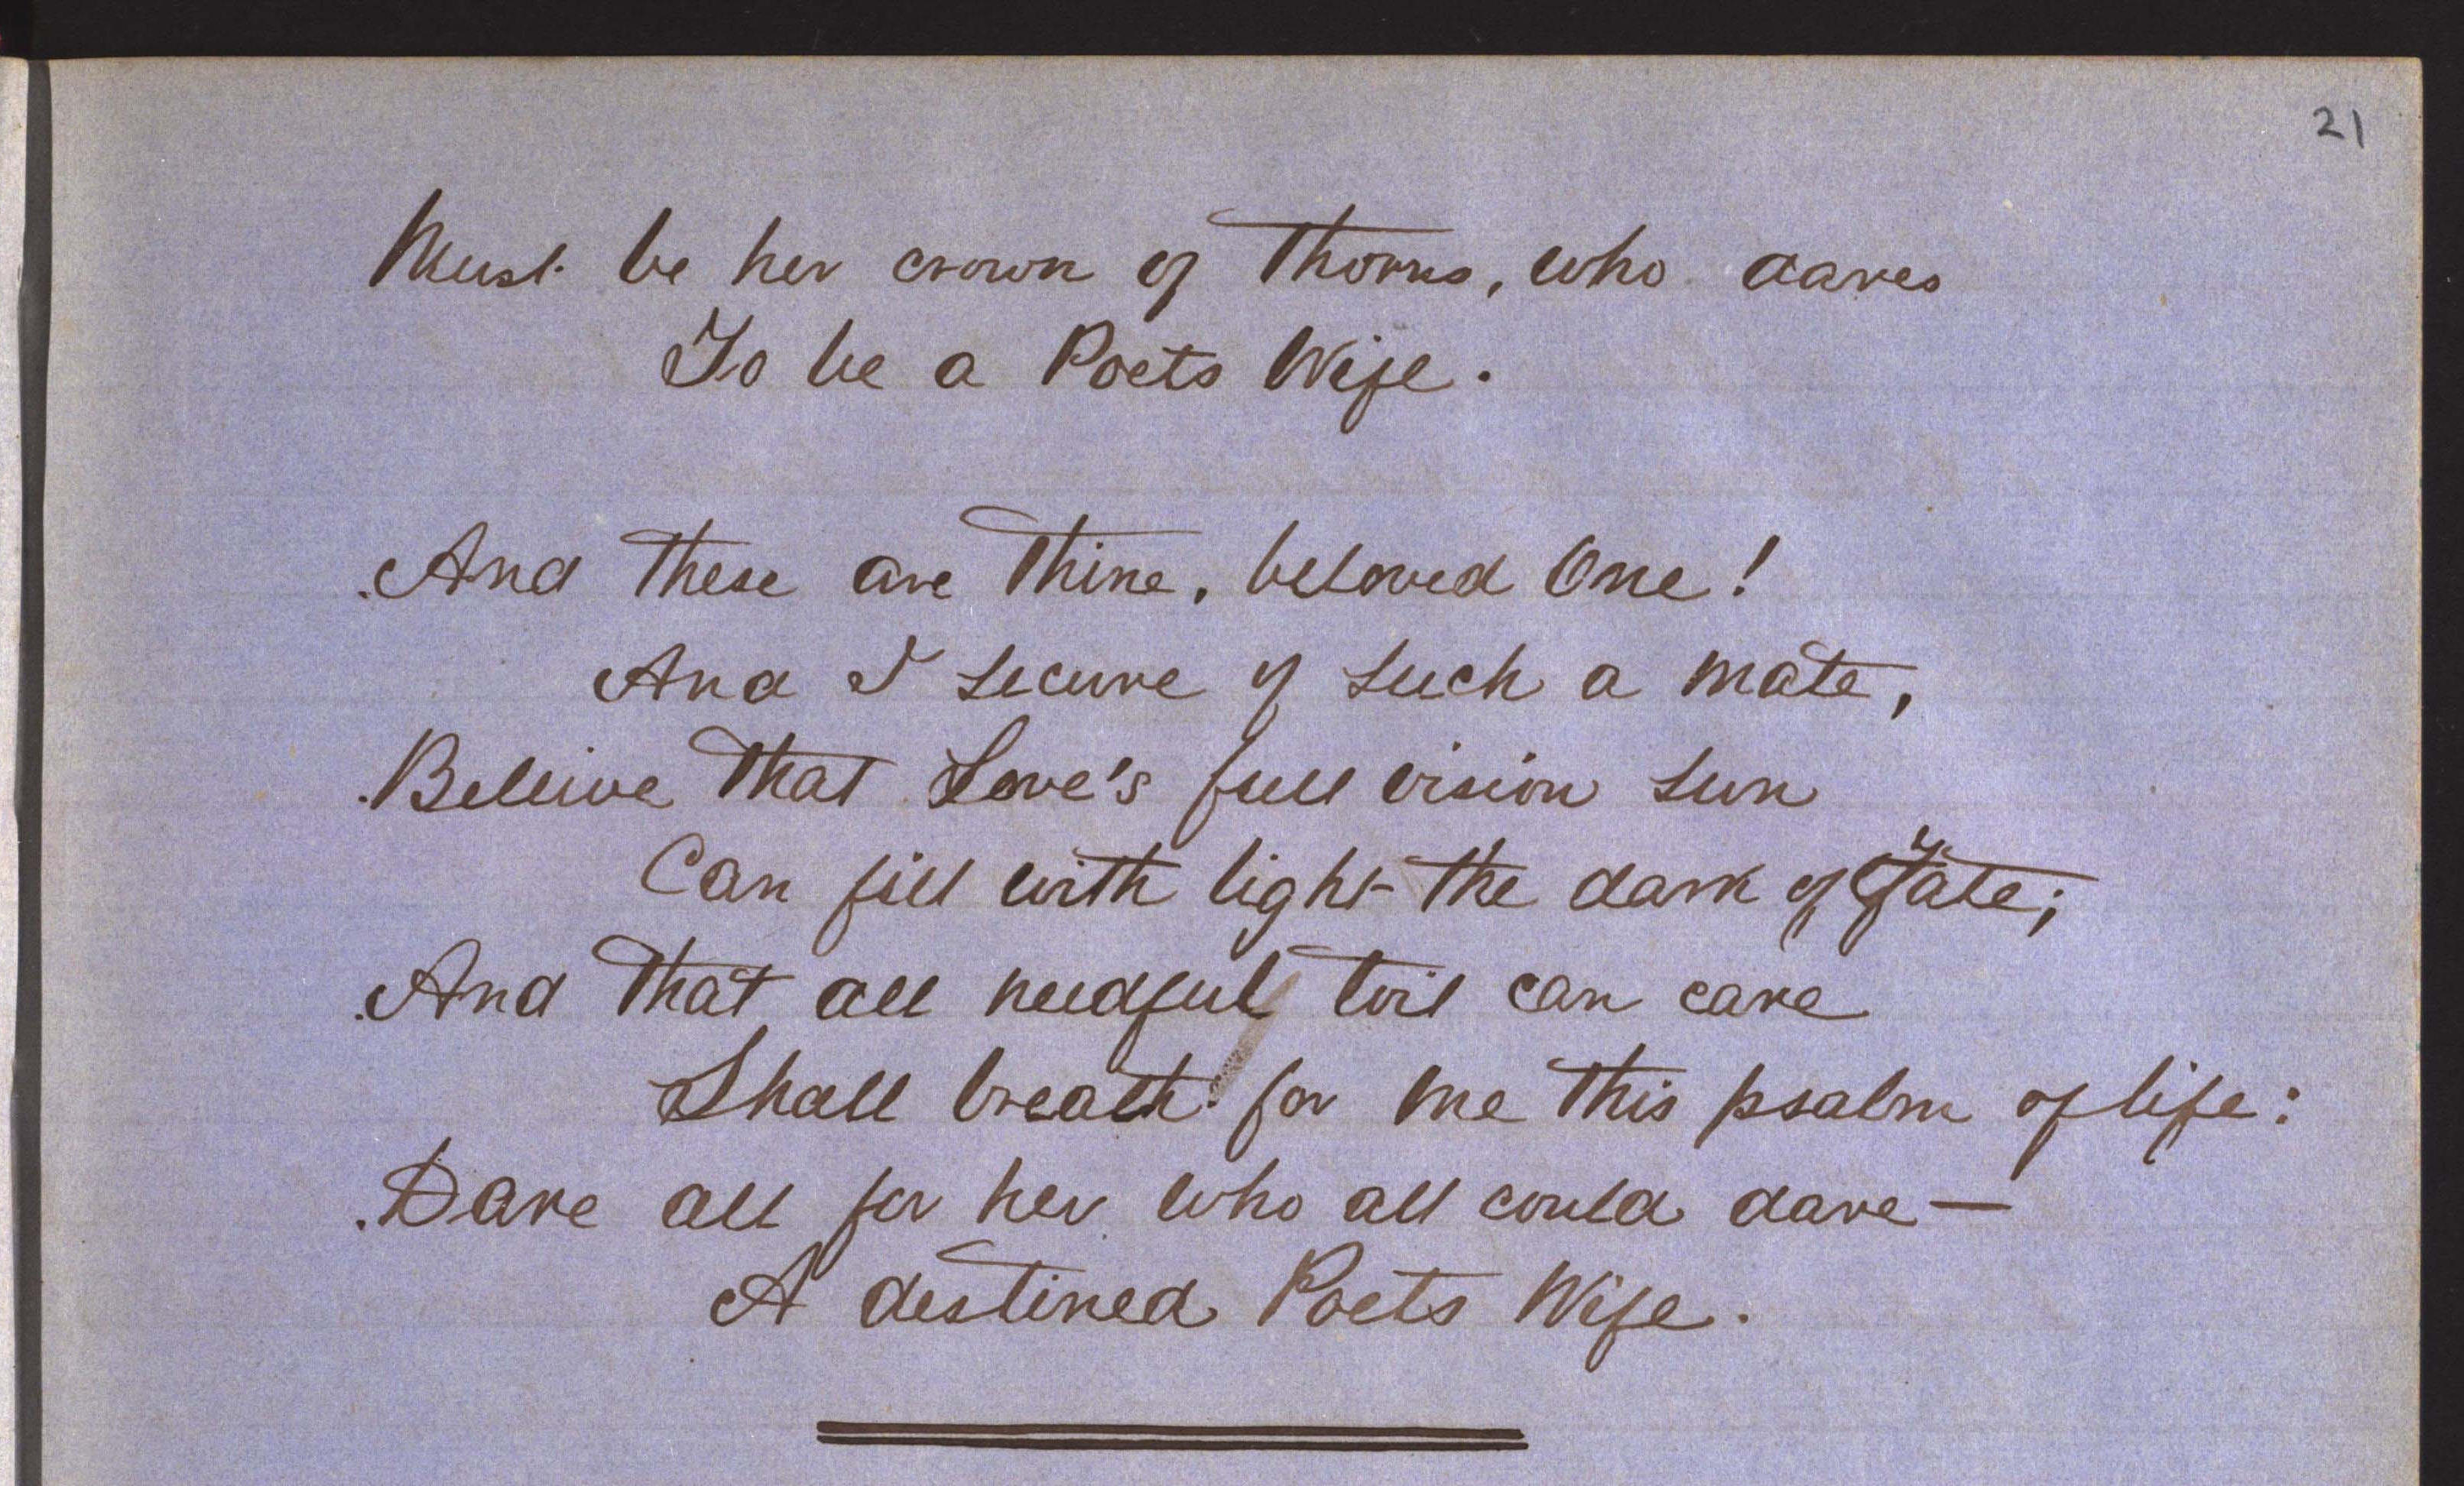 21
Must be her crown of Thorns, who dares
To be a Poets Wife.
And these are thine, beloved One!
And I secure of such a mate,
Beleive that Love's full vision sun
Can fill with light the dark of Fate;
And that all needful toil can care
Shall breath for me this psalm of life:
Dare all for her who all could dare—
A destined Poets Wife.